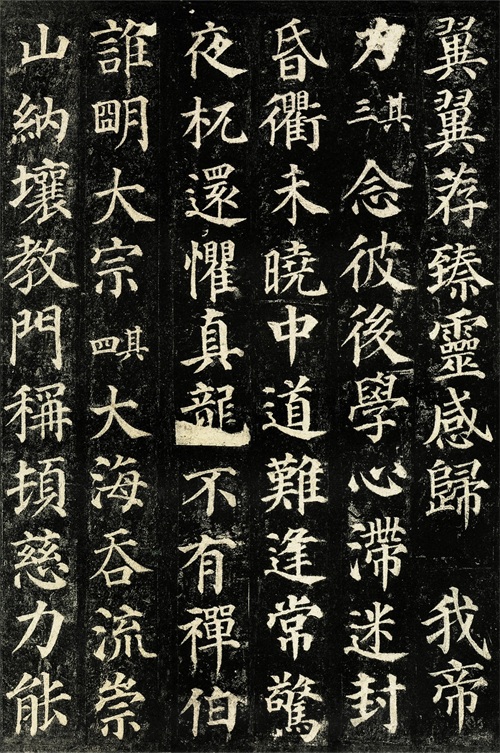 翼翼荐臻靈感歸　我帝
力其三念彼後學心滯迷封
昏衢未曉中道難逢常驚
夜杌還懼真龍不有禪伯
誰朙大宗其四大海吞流崇
山納壤教門稱頓慈力能